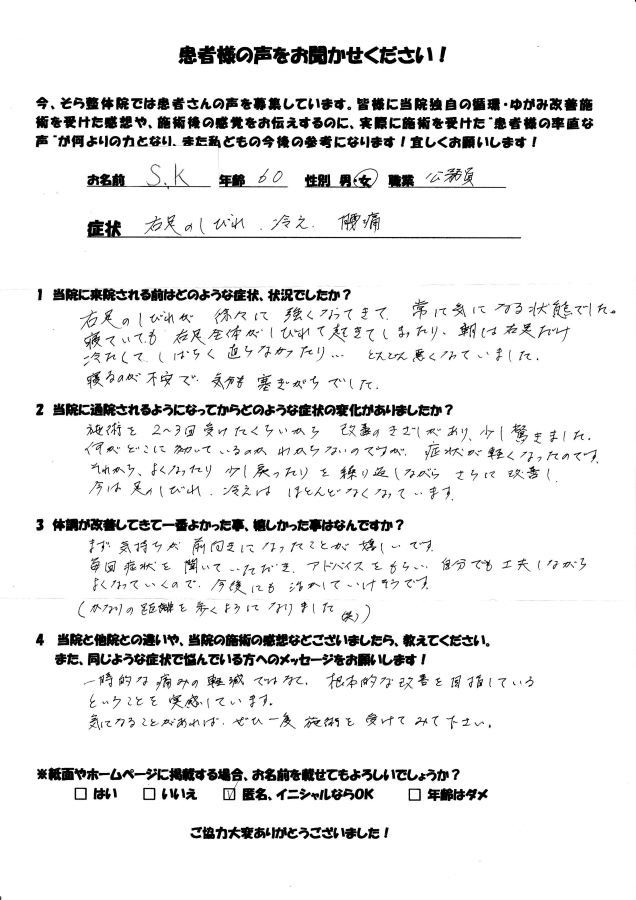 患者様の声をお聞かせください！
今、そら整体院では患者さんの声を募集しています。皆様に当院独自の循環・ゆがみ改善施
術を受けた感想や、施術後の感覚をお伝えするのに、実際に施術を受けた"患者様の率直な
声"が何よりの力となり、また私どもの今後の参考になります！宜しくお願いします！
お名前 S.K 年齢 60 性別 男・女 職業 公務員
症状 右足のしびれ、冷え、腰痛
1 当院に来院される前はどのような症状、状況でしたか？
右足のしびれが 徐々に 強くなってきて、常に気になる状態でした。
寝ていても 右足全体がしびれて起きてしまったり、朝は右足だけ
冷たくて、しばらく 直らなかったり… どんどん悪くなていました。
寝るのが不安で、気分も 塞ぎがちでした。
2 当院に通院されるようになってからどのような症状の変化がありましたか？
施術を 2〜3回受けたくらいから 改善のきざしがあり、少し驚きました。
何がどこに効いているのか わからないのですが、症状が軽くなったのです。
それから、よくなったり 少し戻ったり を 繰り返しながら さらに 改善し、
今は 足のしびれ、冷えは ほとんどなくなっています。
3 体調が改善してきて一番よかった事、嬉しかった事はなんですか？
まず 気持ちが 前向きに なったことが 嬉しいです。
毎回 症状を 聞いていただき、アドバイスをもらい、自分でも 工夫しながら
よくなっていくので、今後にも 活かしていけそうです。
（かなりの 距離を 歩くようになりました (笑)）
4 当院と他院との違いや、当院の施術の感想などございましたら、教えてください。
また、同じような症状で悩んでいる方へのメッセージをお願いします！
一時的な 痛みの 軽減 ではなくて、根本的な 改善を 目指している
ということを 実感しています。
気になることがあれば、ぜひ一度 施術を 受けて みて 下さい。
※紙面やホームページに掲載する場合、お名前を載せてもよろしいでしょうか？
□ はい □ いいえ ☑ 匿名、イニシャルならOK □ 年齢はダメ
ご協力大変ありがとうございました！